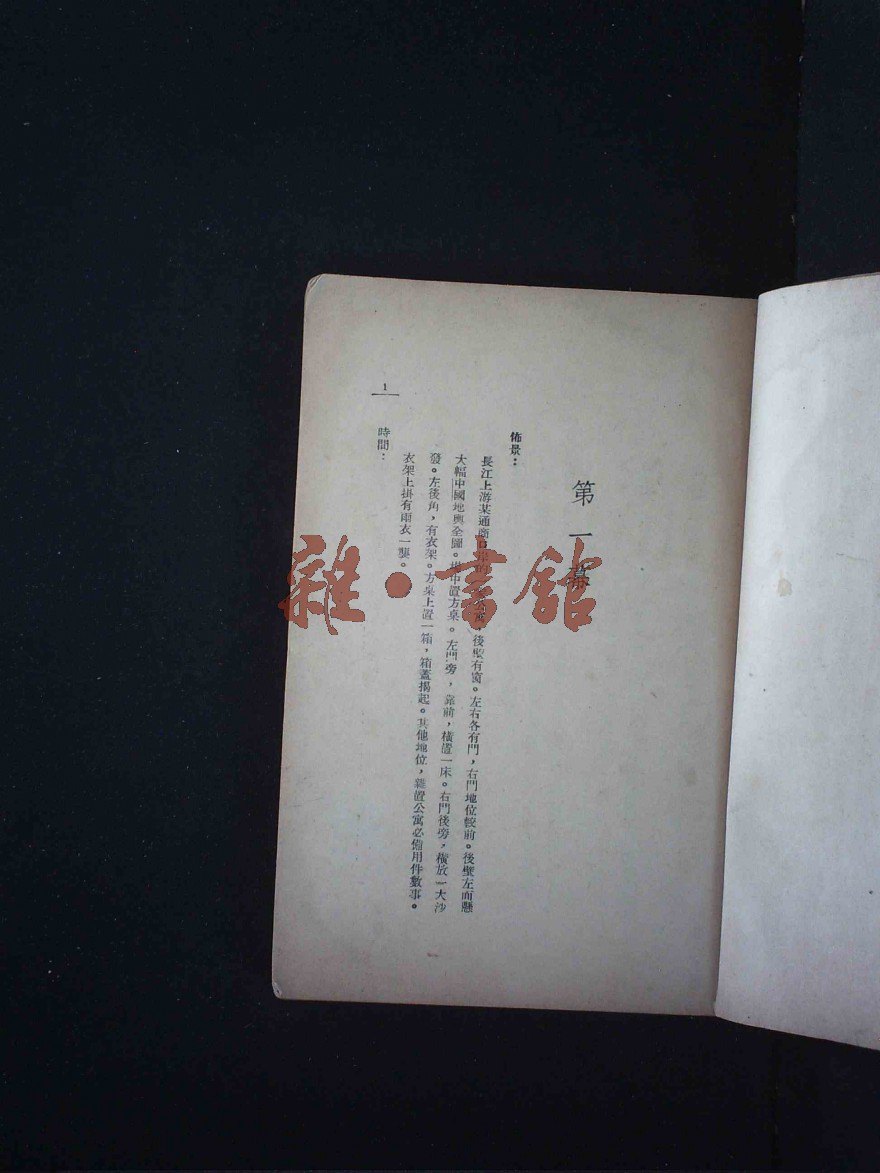 第一幕
佈景：
長江上游某通商口岸的公寓，後壁有窗。左右各有門，右門地位較前。後壁左面懸
大幅中國地輿全圖。場中置方桌。左門旁，靠前，橫置一床。右門後旁，橫放一大沙
發。左後角，有衣架。方桌上置一箱，箱蓋揭起。其他地位，雜置公寓必備用件數事。
衣架上掛有雨衣一襲。
時間：
1
雜·書館